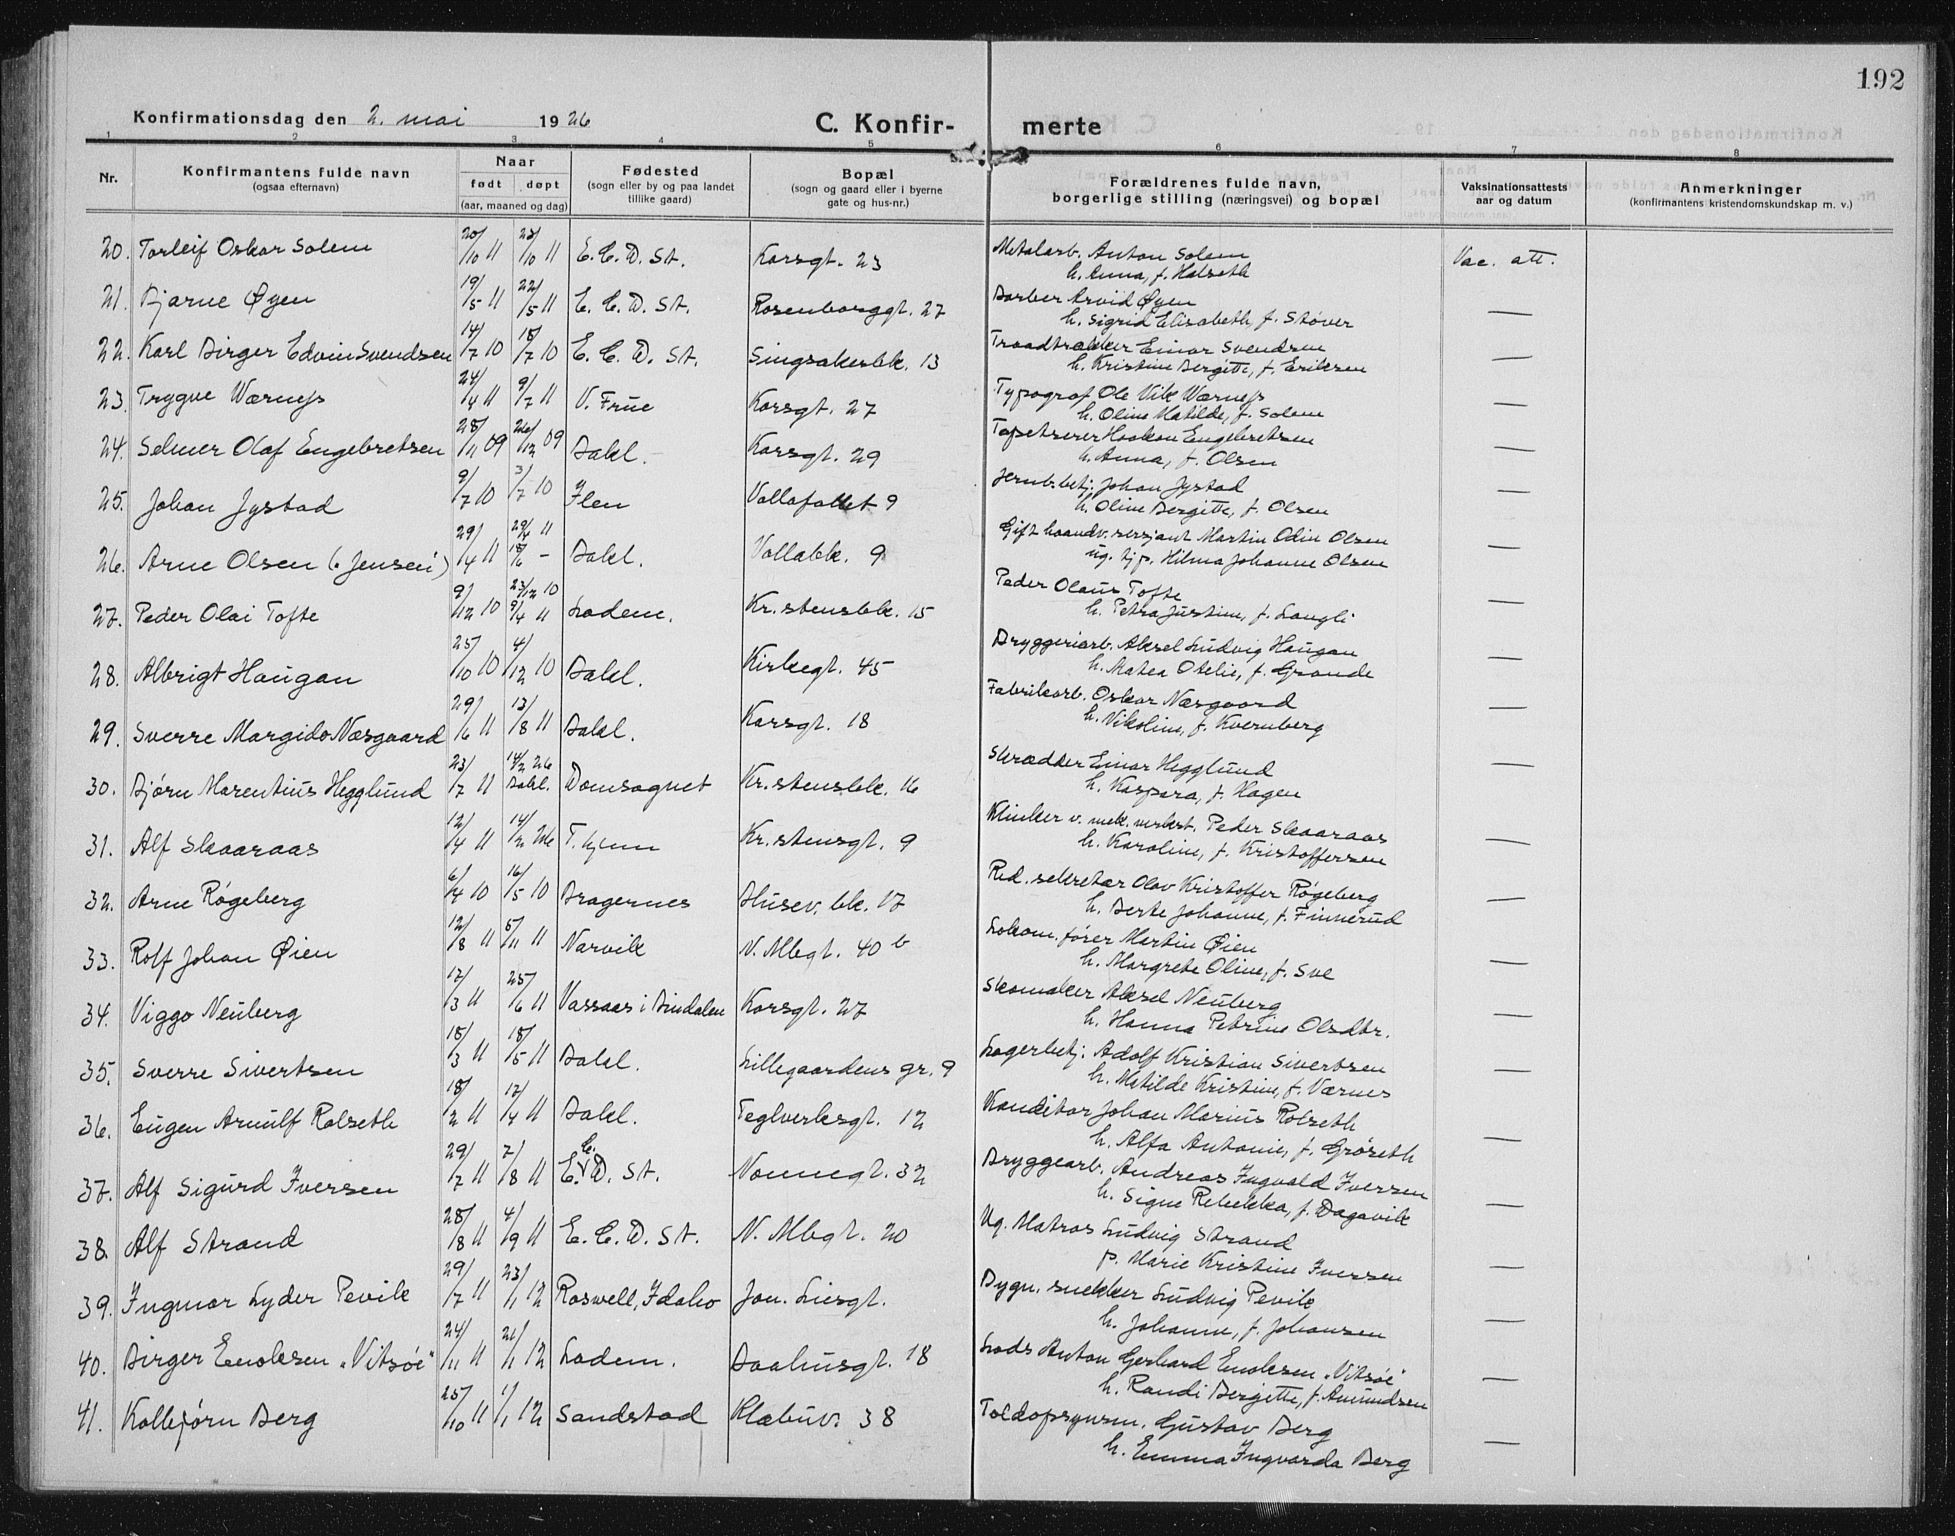 192
Konfirmationsdag den 2. mai 1926 C. Konfir- merte
1 2 3 4 5 6 7 8
Nr. Konfirmantens fulde navn (ogsaa efternavn) Naar født døpt (aar, maaned og dag) Fødested (sogn eller by og paa landet tillike gaard) Bopæl (sogn og gaard eller i byerne gate og hus-nr.) Forældrenes fulde navn, borgerlige stilling (næringsvei) og bopæl Vaksinationsattests aar og datum Anmerkninger (konfirmantens kristendomskundskap m. v.)
20. Torleif Oskar Solem 20/10 11 23/10 11 E. C. D. St. Korsgt. 23 Metalarb. Anton Solem Vac. att.
h. Anna, f. Halseth
21. Bjarne Øyen 19/5 11 22/5 11 E. C. D. St. Rosenborggt. 27 Barber Arvid Øyen —
h. Sigrid Elisabeth, f. Støver
22. Karl Birger Edvin Svendsen 14/7 10 18/7 10 E. C. D. St. Singsakerbk. 13 Traadtrækker Einar Svendsen —
h. Kristine Bergitte, f. Eriksen
23. Trygve Værness 24/4 11 9/7 11 V. Frue Korsgt. 27 Typograf Ole Vik Værness —
h. Oline Matilde, f. Solem
24. Selmer Olaf Engebretsen 28/11 09 26/12 09 Bakl. Korsgt. 29 Tapetserer Haakon Engebretsen —
h. Anna, f. Olsen
25. Johan Jystad 9/7 10 3/7 10 Ilen Vollafallet 9 Jernb.betj. Johan Jystad —
h. Oline Bergitte, f. Olsen
26. Arne Olsen („Jensen") 29/4 11 29/4 11 18/6 – Bakl. Vollabk. 9 Gift haandv. sersjant Martin Odin Olsen —
ug. tj.p. Hilma Johanne Olsen
27. Peder Olai Tofte 9/12 10 23/12 10 9/4 11 Ladem. Kr.stensbk. 15 Peder Olaus Tofte —
h. Petra Justine, f. Langli
28. Albrigt Haugan 25/10 10 4/12 10 Bakl. Kirkegt. 45 Bryggeriarb. Aksel Ludvig Haugan —
h. Matea Otelie, f. Grande
29. Sverre Margido Næsgaard 29/6 11 13/8 11 Bakl. Korsgt. 18 Fabrikarb. Oskar Næsgaard —
h. Nikoline, f. Kvernberg
30. Bjørn Marentius Hegglund 23/7 11 14/2 26 Bakl. Domsognet Kr.stensbk. 16 Skrædder Einar Hegglund —
h. Kaspara, f. Hagen
31. Alf Skaaraas 12/4 11 14/2 26 T.hjem Kr.stensgt. 9 Klinker v. mek. verkst. Peder Skaaraas —
h. Karoline, f. Kristoffersen
32. Arne Røgeberg 6/4 10 16/5 10 Bragernes Husev. bk. 17 Red. sekretær Olav Kristoffer Røgeberg —
h. Berte Johanne, f. Finnerud
33. Rolf Johan Øien 12/8 11 5/11 11 Narvik N. Mbgt. 40 b Lokom. fører Martin Øien —
h. Margrete Oline, f. Sve
34. Viggo Neuberg 12/3 11 25/6 11 Vassaas i Bindalen Korsgt. 27 Skomaker Aksel Neuberg —
h. Hanna Petrine Olsdtr.
35. Sverre Sivertsen 18/3 11 18/5 11 Bakl. Lillegaardens gr. 9 Lagerbetj. Adolf Kristian Sivertsen —
h. Matilde Kristine, f. Værnes
36. Eugen Arnulf Rolseth 18/2 11 17/4 11 Bakl. Teglverksgt. 12 Konditor Johan Marius Rolseth —
h. Alfa Antonie, f. Grøseth
37. Alf Sigurd Iversen 29/7 11 7/8 11 E. C. D. St. Nonnegt. 32 Bryggearb. Andreas Ingvald Iversen —
h. Signe Rebekka, f. Dagsvik
38. Alf Strand 28/8 11 4/9 11 E. C. D. St. N. Mbgt. 20 Ug. Matros Ludvig Strand —
p. Marie Kristine Iversen
39. Ingmar Lyder Pevik 29/7 11 23/1 12 Roswell, Idaho Jon. Liesgt. Bygn. snekker Ludvig Pevik —
h. Johanne, f. Johansen
40. Birger Enoksen „Vitsøe" 24/11 11 21/1 12 Ladem. Baahusgt. 18 Lods Anton Gerhard Enoksen „Vitsøe" —
h. Randi Bergitte, f. Amundsen
41. Kolbjørn Berg 25/10 11 1/1 12 Sandstad Klæbuv. 38 Toldopsynsm. Gustav Berg —
h. Emma Ingvarda Berg